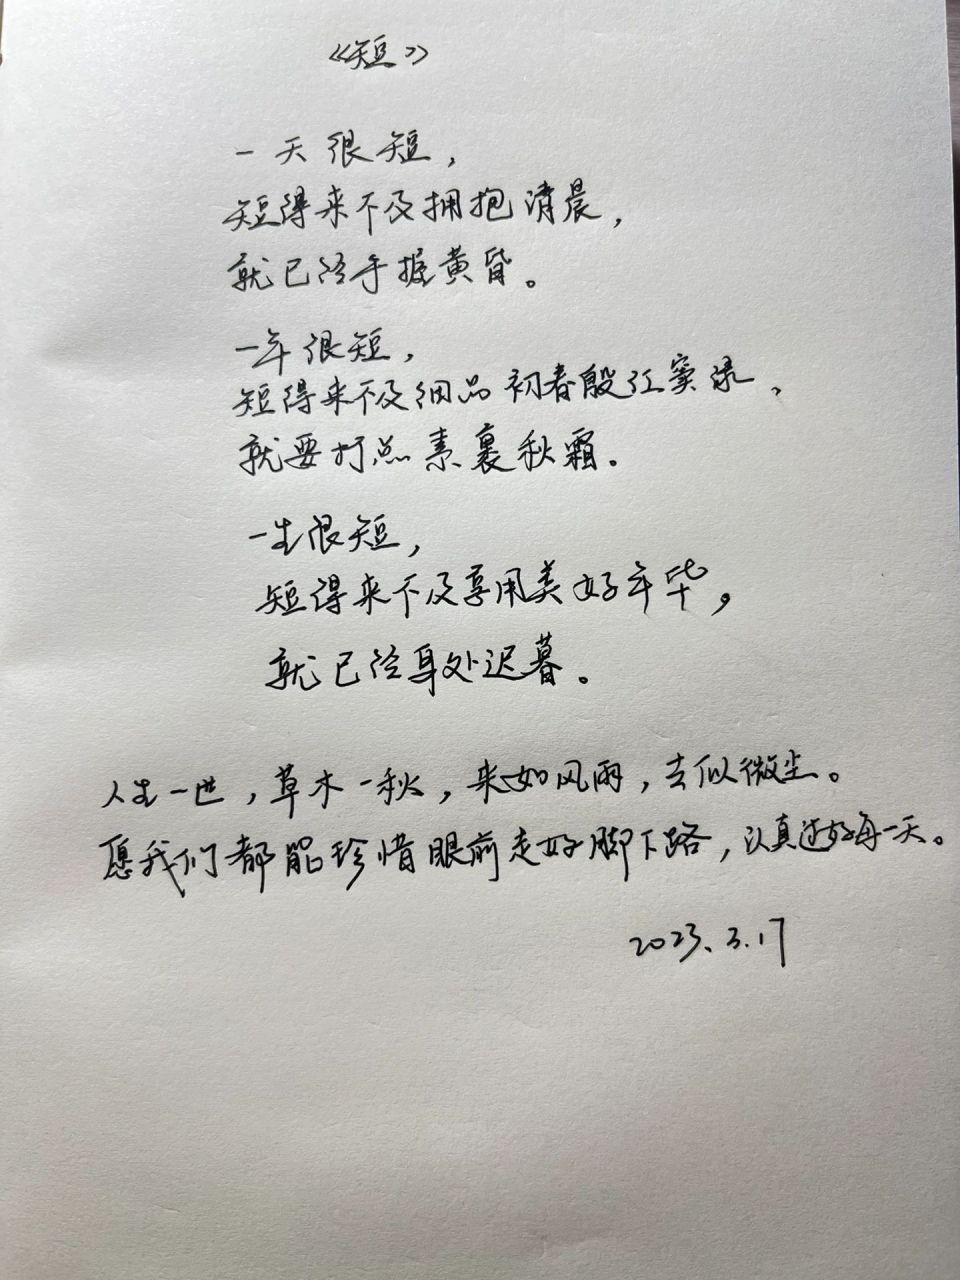 《短》
一天很短，
短得来不及拥抱清晨，
就已经手握黄昏。
一年很短，
短得来不及细品初春殷红窦绿，
就要打点素裹秋霜。
一生很短，
短得来不及享用美好年华，
就已经身处迟暮。
人生一世，草木一秋，来如风雨，去似微尘。
愿我们都能珍惜眼前走好脚下路，认真过好每一天。
2023.3.17